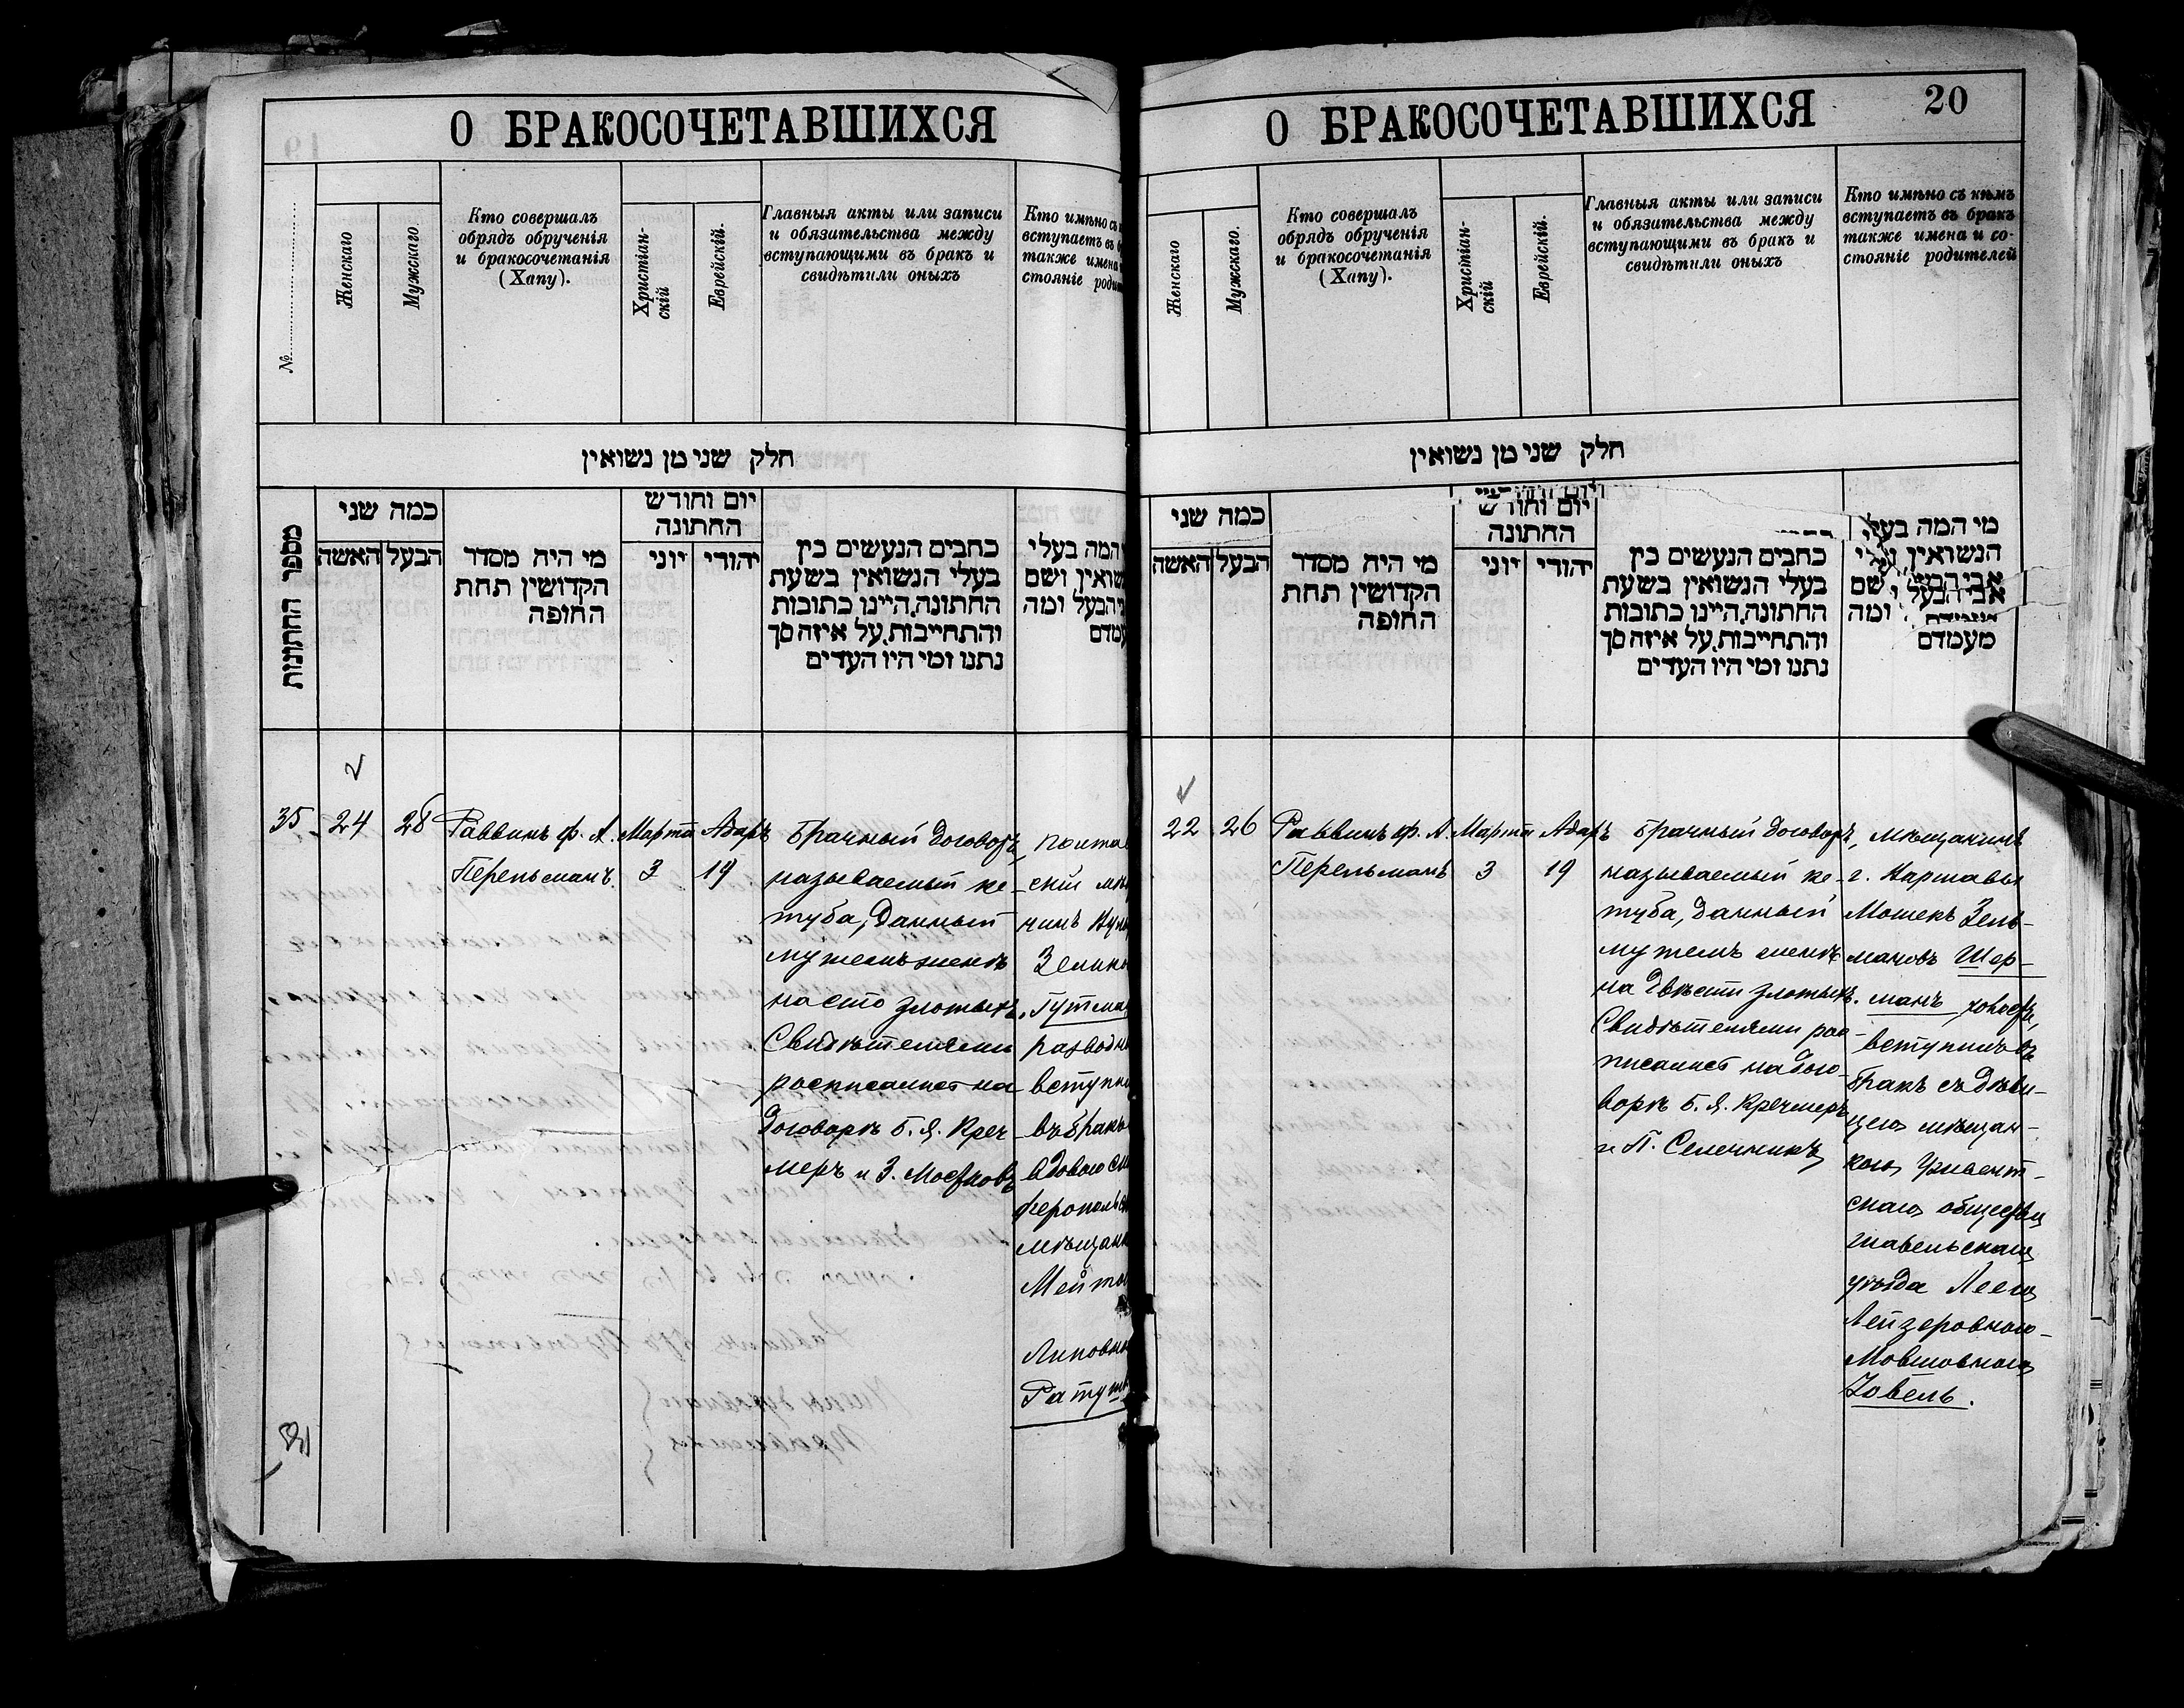 О БРАКОСОЧЕТАВШИХСЯ
№
Женскаго
Мужскаго
Кто совершалъ
обрядъ обрученія
и бракосочетанія
(Хапу).
Христіан-
скій
Еврейскій.
Главныя акты или записи
и обязательства между
вступающими въ бракъ и
свидѣтили оныхъ
Кто имѣно съ
вступаетъ въ
также имена
стояніе
חלק שני מן נשואין
מספר החתונות
כמה שני
האשה
הבעל
מי היה מסדר
הקדושין תחת
החופה
יום וחודש
החתונה
יוני
יהודי
כתבים הנעשים בין
בעלי הנשואין בשעת
החתונה, היינו כתובות
והתחייבות, על איזה סך
נתנו ומי היו העדים
המה בעלי
ושם
הבעל ומה
35
24
28
Раввинъ Ф. А.
Перельманъ.
Марта
3
Адаръ
19
Брачный договоръ,
называемый ке-
туба, данный
мужемъ женѣ
на сто злотыхъ.
Свидѣтелями
росписались на
договорѣ Б. Я. Креч-
меръ и З.
скій
вступи
въ бракъ
вдовою
О БРАКОСОЧЕТАВШИХСЯ
20
Женскаго
Мужскаго.
Кто совершалъ
обрядъ обрученія
и бракосочетанія
(Хапу).
Христіан-
скій
Еврейскій.
Главныя акты или записи
и обязательства между
вступающими въ бракъ и
свидѣтили оныхъ
Кто имѣно съ кѣмъ
вступаетъ въ бракъ
также имена и со-
стояніе родителей
חלק שני מן נשואין
כמה שני
האשה
הבעל
מי היה מסדר
הקדושין תחת
החופה
יום וחודש
החתונה
יוני
יהודי
כתבים הנעשים בין
בעלי הנשואין בשעת
החתונה, היינו כתובות
והתחייבות, על איזה סך
נתנו ומי היו העדים
מי המה בעלי
הנשואין
אבי הבעל
שם
ומה
מעמדם
22
26
Раввинъ Ф. А.
Перельманъ
Марта
3
Адаръ
19
Брачный договоръ,
называемый ке-
туба, данный
мужемъ женѣ
на двѣсти злотыхъ.
Свидѣтелями рос-
писались на дого-
ворѣ Б. Я. Кречмеръ
и П. Селечникъ
мѣщанинъ
г. Варшавы
Мошекъ Зель-
мановъ Шер-
манъ холостъ,
вступилъ въ
бракъ съ дѣви-
цею мѣщан-
кою
скаго общества
шавельскаго
уѣзда Леею
Лейзеровною-
Мовшовною